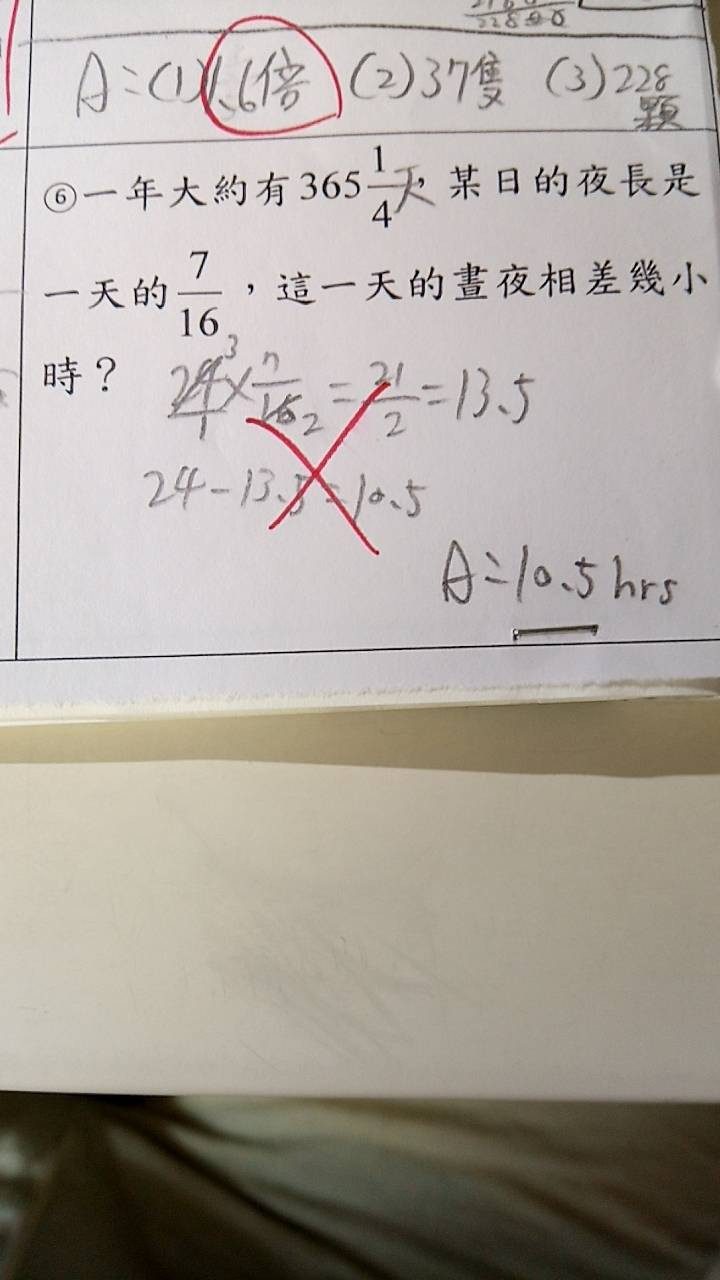 228
A=(1)1.6倍 (2)37隻 (3)228顆
⑥一年大約有365 1/4天，某日的夜長是
一天的 7/16，這一天的晝夜相差幾小
時？
24/1 3 × 7/16 2 = 21/2 = 13.5
24-13.5=10.5
A=10.5hrs